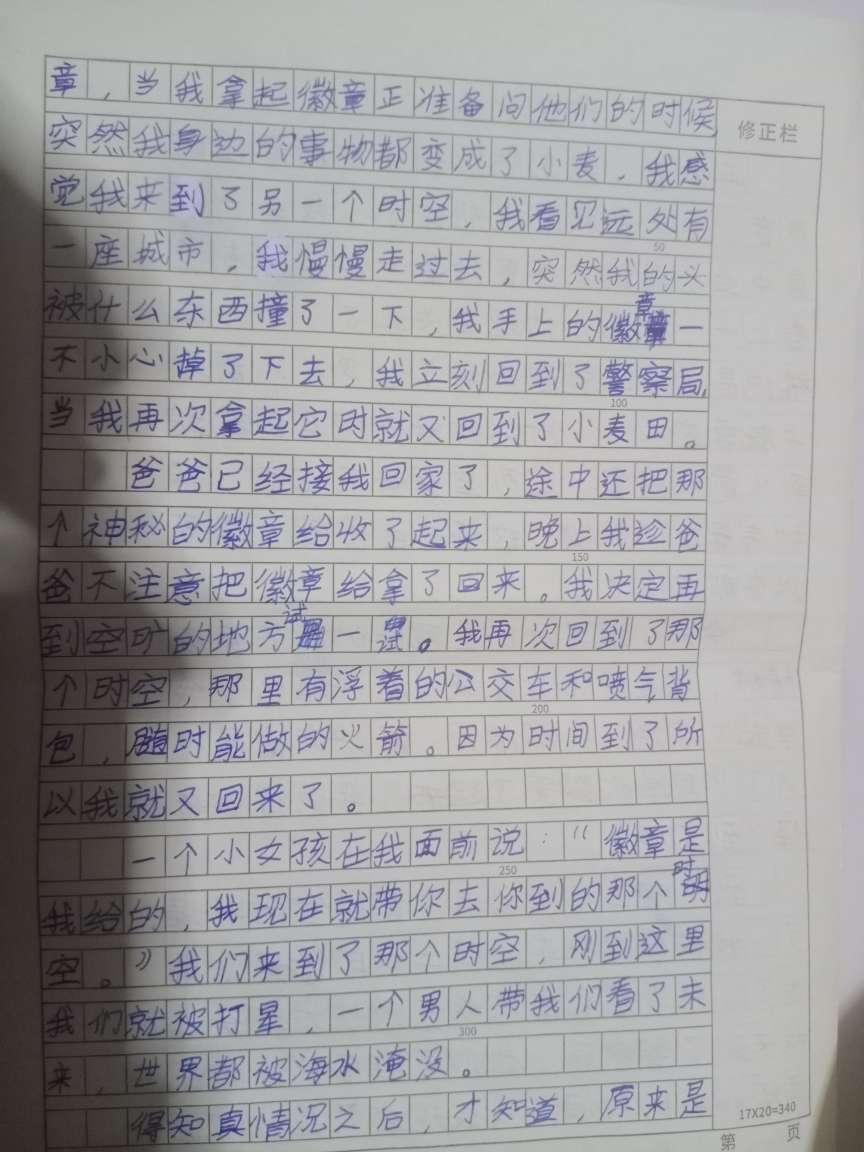 章，当我拿起徽章正准备问他们的时候
修正栏
突然我身边的事物都变成了小麦，我感
觉我来到了另一个时空，我看见远处有
50
一座城市，我慢慢走过去，突然我的头
被什么东西撞了一下，我手上的徽章一
不小心掉了下去，我立刻回到了警察局，
100
当我再次拿起它时就又回到了小麦田。
爸爸已经接我回家了，途中还把那
个神秘的徽章给收了起来，晚上我趁爸
150
爸不注意把徽章给拿了回来。我决定再
到空旷的地方试一试。我再次回到了那
个时空，那里有浮着的公交车和喷气背
200
包，随时能做的火箭。因为时间到了所
以我就又回来了。
一个小女孩在我面前说：“徽章是
250
我给的，我现在就带你去你到的那个时
空。”我们来到了那个时空，刚到这里
我们就被打晕，一个男人带我们看了未
300
来，世界都被海水淹没。
得知真情况之后，才知道，原来是
17X20=340
第 页